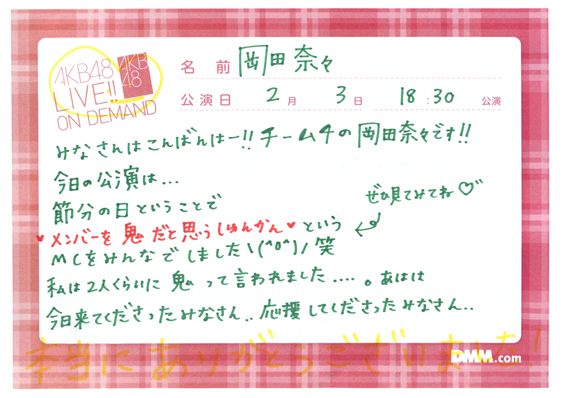 AKB48
LIVE!!
ON DEMAND
AKB
48
名前 岡田奈々
公演日 2月 3日 18:30 公演
みなさんはこんばんはー!! チーム4の岡田奈々です!!
今日の公演は...
節分の日ということで
ぜひ見てみてね♡
♥メンバーを鬼だと思うしゅんかん♥という
MCをみんなでしました\(^o^)/笑
私は2人くらいに鬼って言われました....。あはは
今日来てくださったみなさん..応援してくださったみなさん..
本当にありがとうございました!
DMM.com